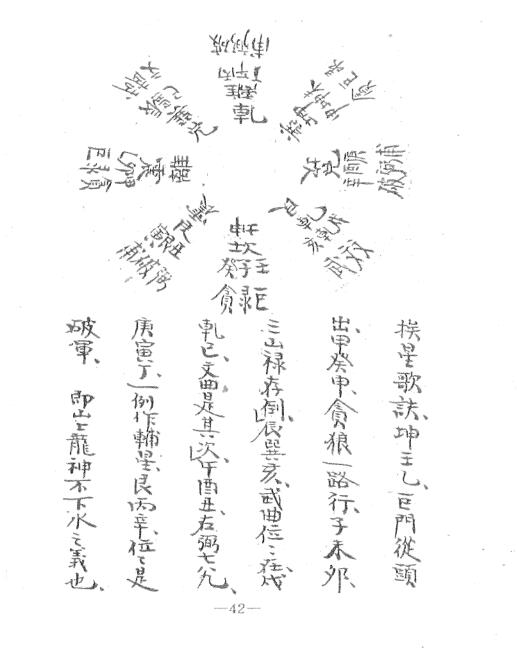 輔弼破
丁午丙
離
乾
離
震
乙卯甲
巨祿貪
坎
兌
辛酉庚
破弼輔
艮
寅艮丑
輔破弼
坎
癸子壬
貪祿巨
挨星歌訣、坤壬乙、巨門從頭
出、甲癸申、貪狼一路行、子未卯、
三山祿存倒、辰巽亥、武曲位〻在、戌
乾巳、文曲是其次、午酉丑、右弼七九、
庚寅丁、一例作輔星、艮丙辛、位〻是
破軍、即山上龍神不下水之義也、
—42—